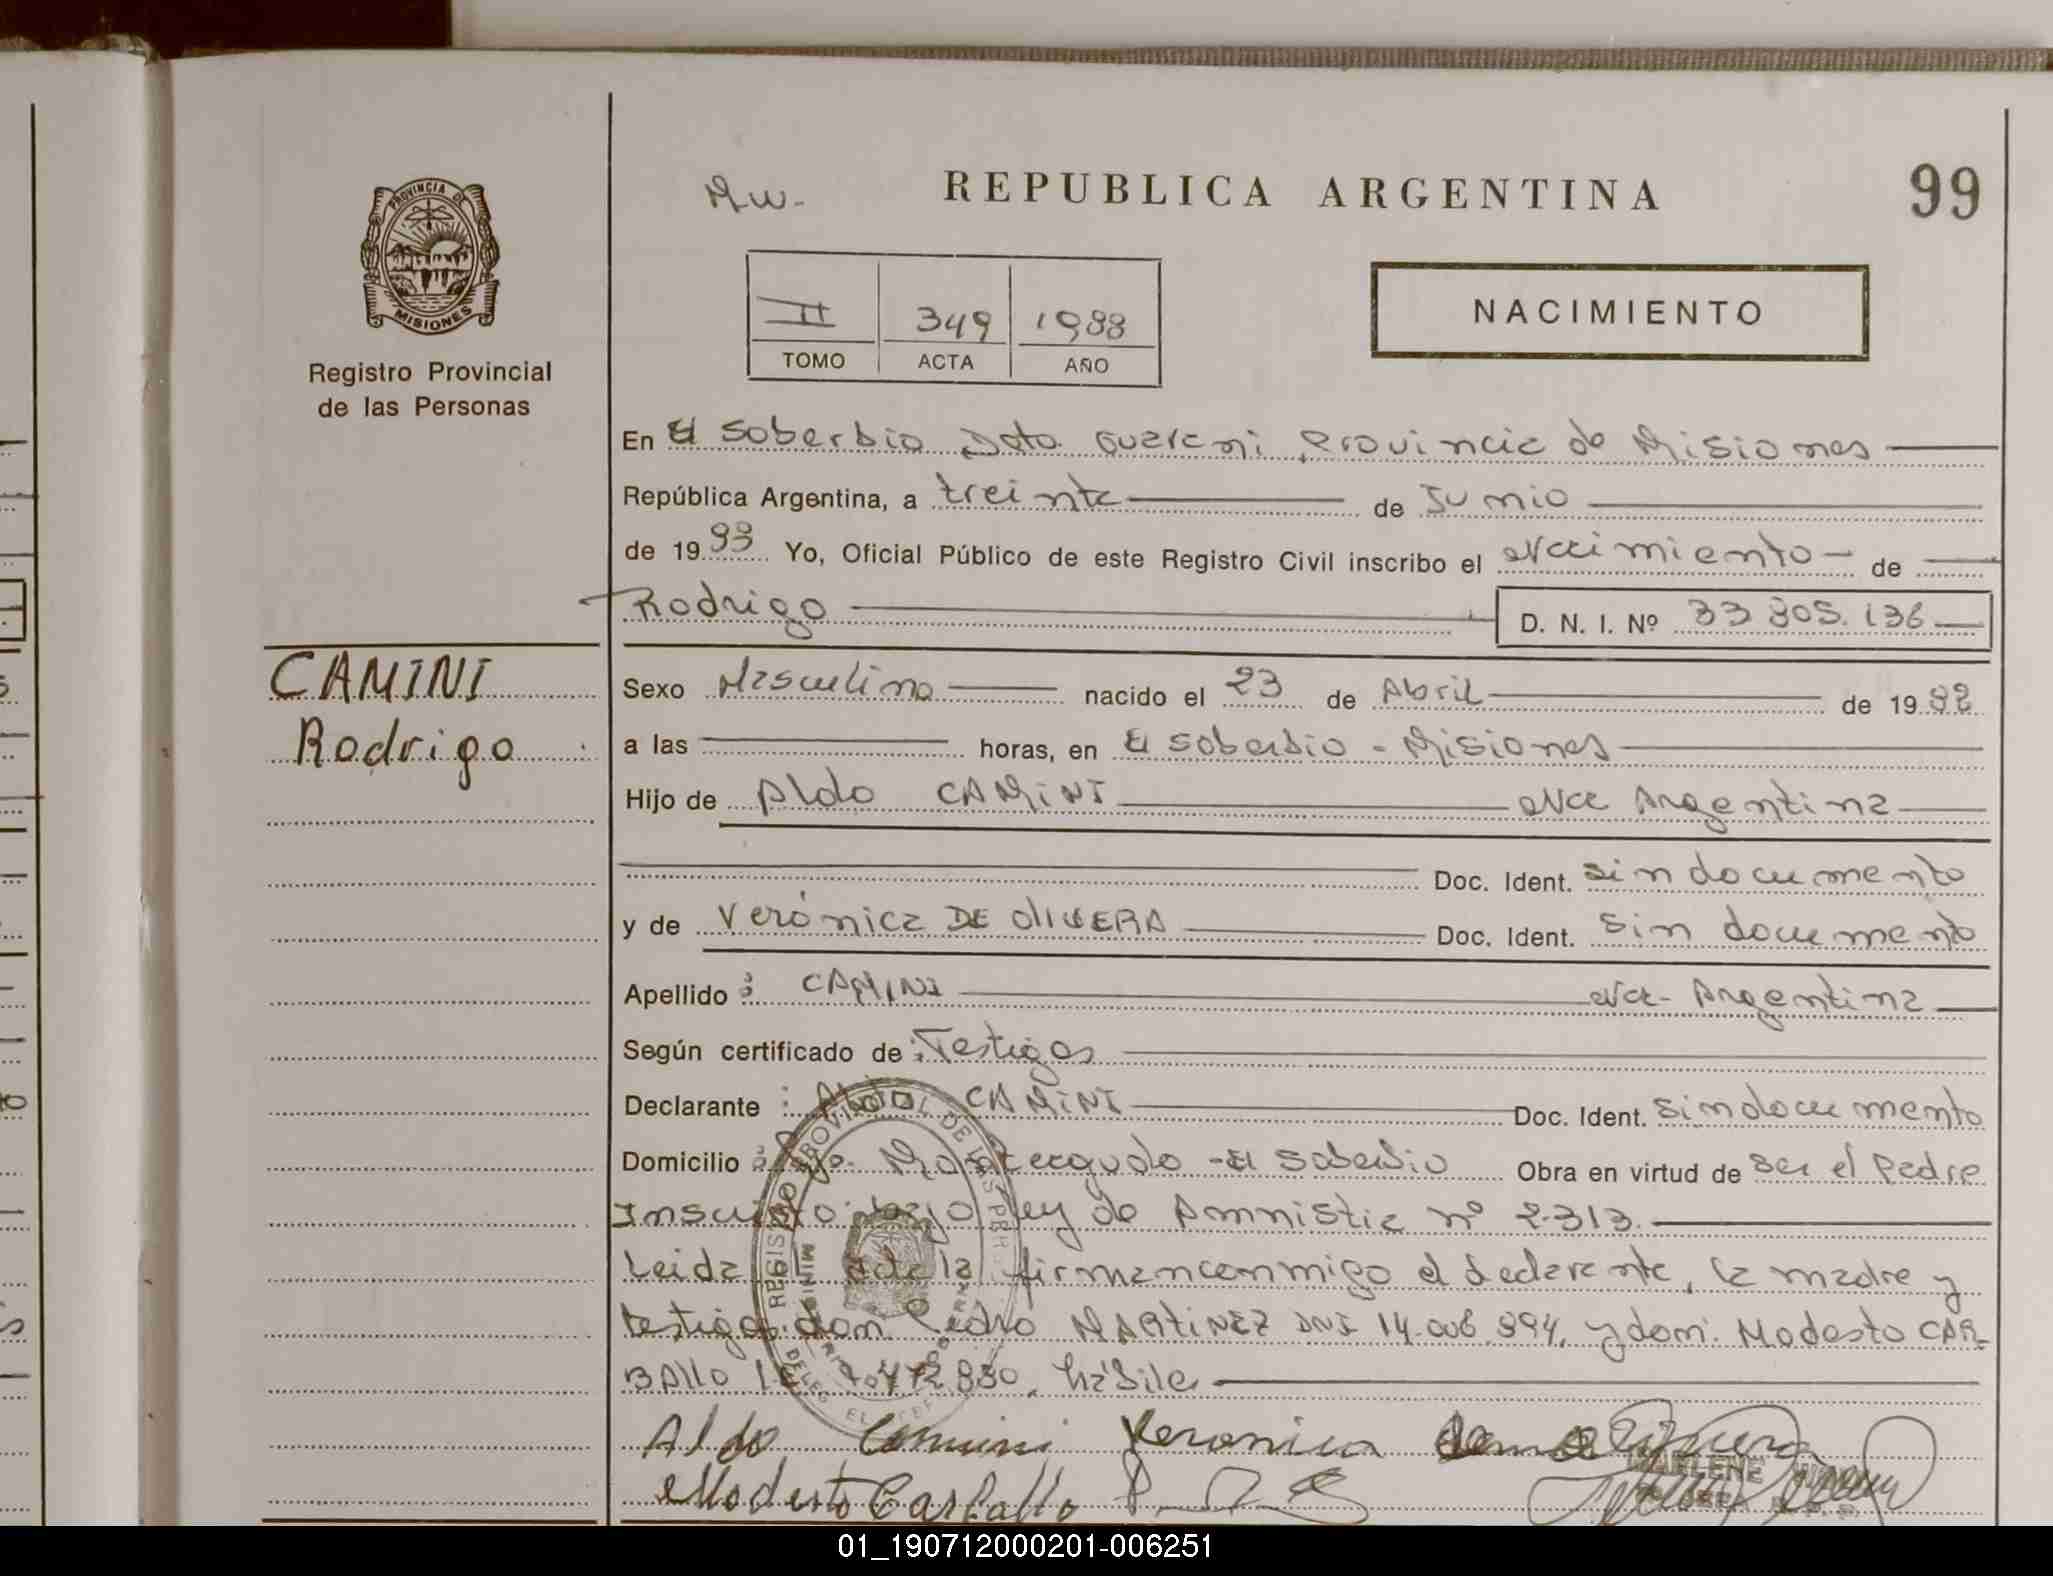 Mw.
REPUBLICA ARGENTINA
99
PROVINCIA DE
MISIONES
Registro Provincial
de las Personas
II 349 1988
TOMO ACTA AÑO
NACIMIENTO
En El Soberbio Dpto. Guarani, Provincia de Misiones
República Argentina, a treinta de Junio
de 1988 Yo, Oficial Público de este Registro Civil inscribo el Nacimiento de
Rodrigo
D. N. I. Nº 33 805.136
CAMINI
Rodrigo
Sexo Masculino nacido el 23 de Abril de 1988
a las horas, en El Soberbio - Misiones
Hijo de Aldo CAMINI Nac Argentina
Doc. Ident. sin documento
y de Verónica DE OLIVERA Doc. Ident. sin documento
Apellido : CAMINI Nac - Argentina
Según certificado de : Testigos
Declarante : Aldo CAMINI Doc. Ident. sin documento
Domicilio : Monteagudo - El Soberbio Obra en virtud de ser el padre
Inscripto bajo ley de Amnistia nº 2.313.
Leida el acta la firman conmigo el declarante, la madre y
testigos: dom Pedro MARTINEZ DNI 14.006.894, y dom. Modesto CAR-
BALLO LE 7.472.830, hábiles
Aldo Camini Veronica
Modesto Carballo
MARLENE
REGISTRO PROVINCIAL DE LAS PER
01_190712000201-006251